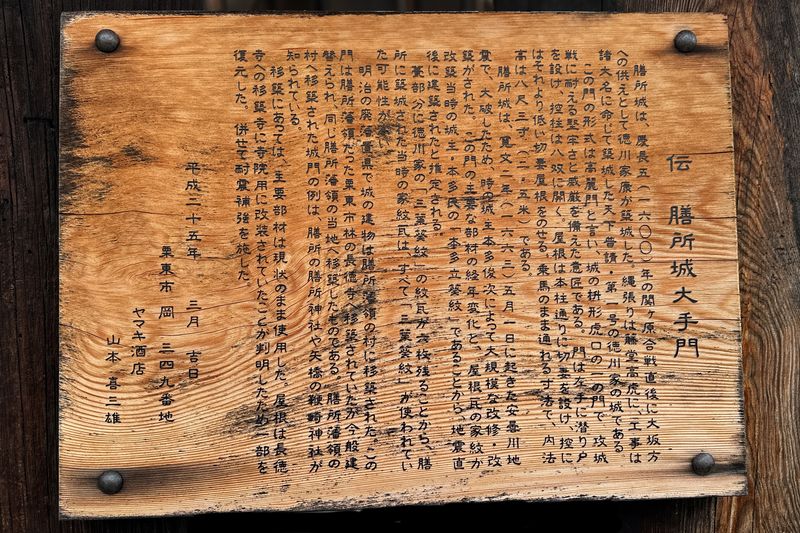 伝 膳所城大手門
膳所城は、慶長五(一六〇〇)年の関ヶ原合戦直後に大坂方
への供えとして徳川家康が築城した。縄張りは藤堂高虎に、工事は
諸大名に命じて築城した天下普請・第一号の徳川家の城である
この門の形式は高麗門と言い、城の枡形虎口の一の門で、攻城
戦に耐える堅牢さと威厳を備えた意匠である。門は左手に潜り戸
を設け、控柱は八双に開く。屋根は本柱通りに切妻を設け、控に
はそれより低い切妻屋根をのせる。乗馬のまま通れる寸法で、内法
高は八尺三寸(二・五米)である。
膳所城は、寛文二年(一六六二)五月一日に起きた安曇川地
震で、大破したため、時の城主本多俊次によって大規模な改修・改
築がされた。この門の主要な部材の経年変化と、屋根瓦の家紋が
改築当時の城主・本多氏の「本多立葵紋」であることから、地震直
後に建築されたと推定される。
藁部分に徳川家の「三葉葵紋」の紋瓦が六枚残ることから、膳
所に築城された当時の家紋瓦は、すべて「三葉葵紋」が使われてい
た可能性が高い。
明治の廃藩置県で城の建物は膳所藩領の村に移築された。この
門は膳所藩領だった栗東市林の長徳寺へ移築されていたが今般建
替えられ、同じ膳所藩領の当地へ移築したものである。膳所藩領の
村へ移築された城門の例は、膳所の膳所神社や矢橋の鞭崎神社が
知られている。
移築にあっては、主要部材は現状のまま使用した。屋根は長徳
寺への移築寺に寺院用に改装されていたことが判明したため一部を
復元した。併せて耐震補強を施した。
平成二十五年 三月 吉日
栗東市 岡 三四九番地
ヤマキ酒店
山本 喜三雄